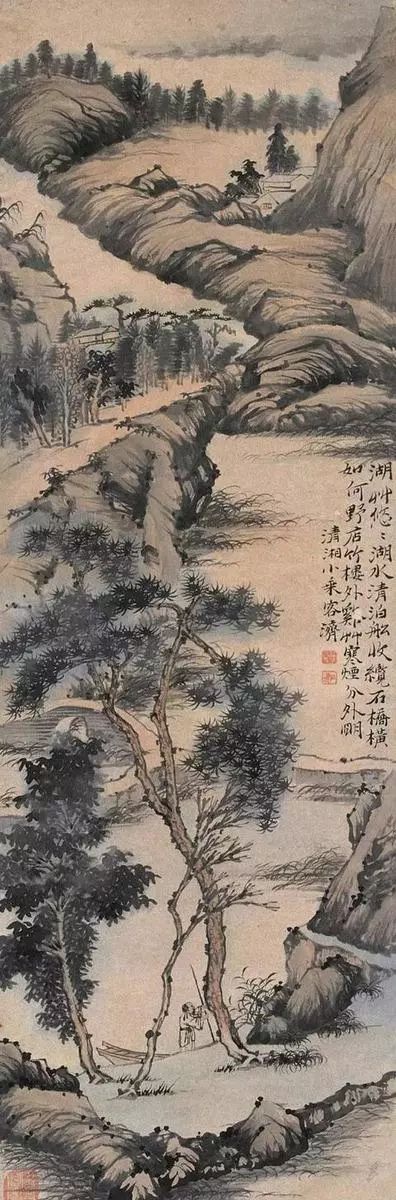 湖艸悠〻湖水清泊船收纜石橋橫
如何野店竹樓外奚艸寒煙分外明
清湘小乘客濟